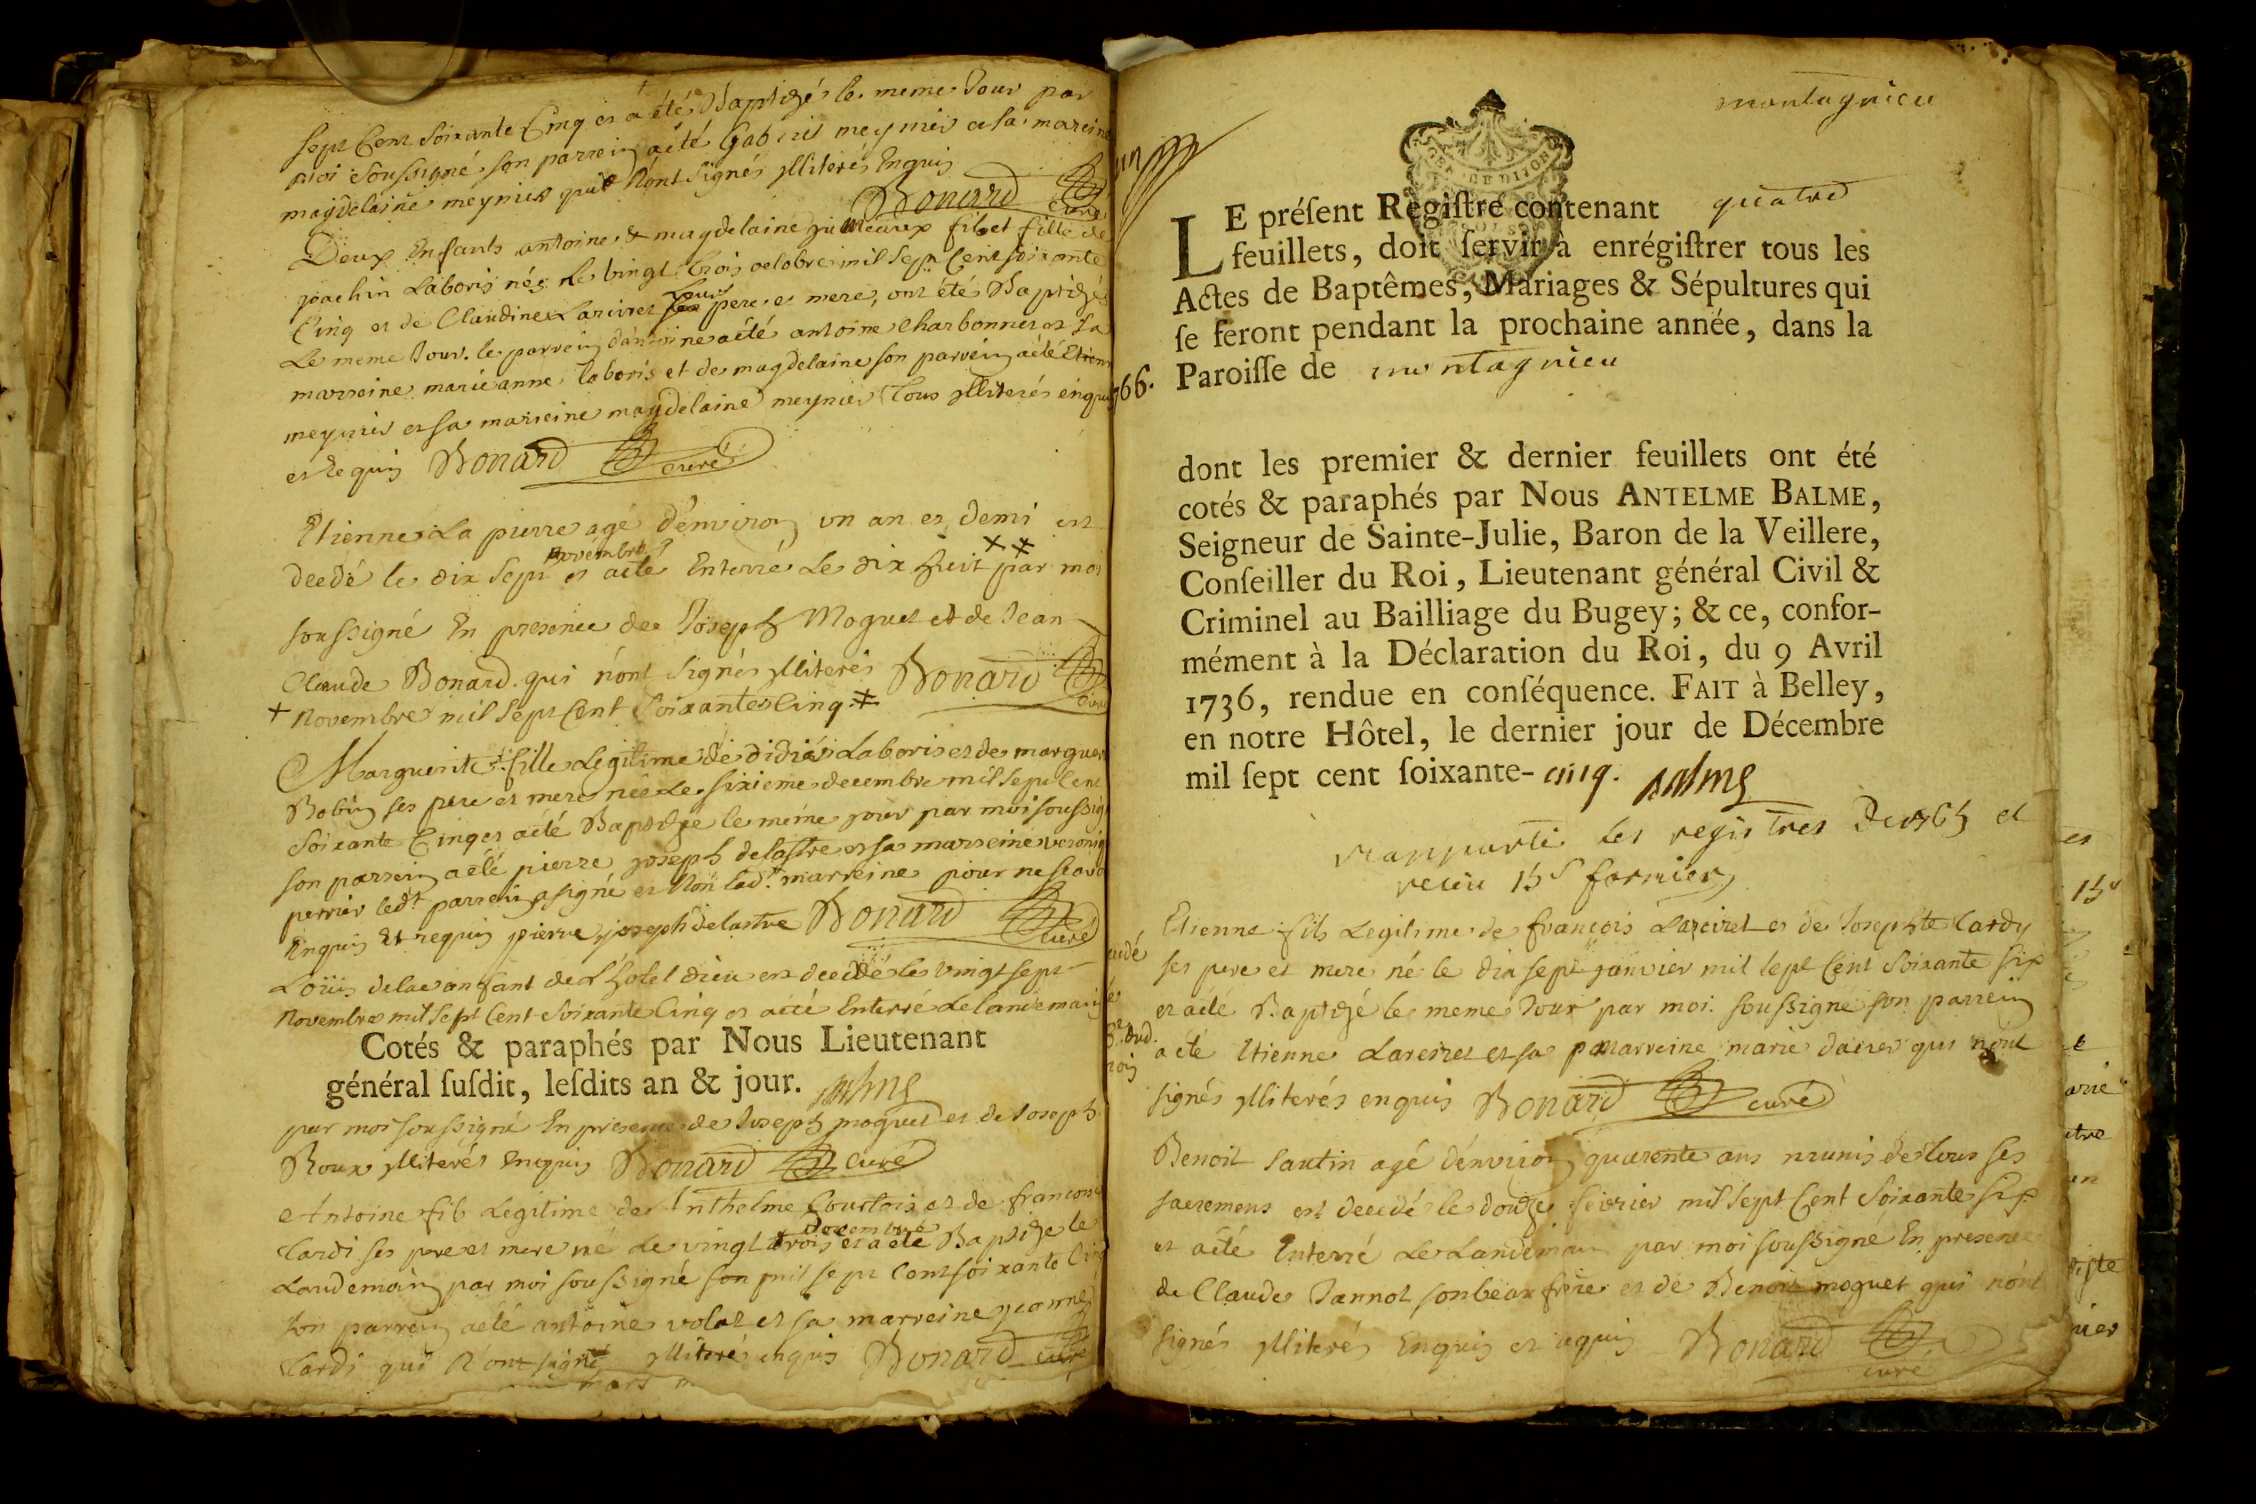 sept Cent soixante Cinq et a été Baptizé le meme Jour par
moi soussigné son parrein a été Gabriel meynier et sa mareine
magdelaine meynier qui n'ont signésylliterés Enquis
Bonard curé
Deux Enfants antoine & magdelaine jumeaux fils et fille de
joachin Laboris nés le vingt trois octobre mil sept Cent soixante
Cinq et de Claudine Larivet leurs pere et mere, ont été Baptizés
Le meme Jour. le parrein d'antoine a été antoine Charbonnet et sa
marreine marie anne laboris et de magdelaine son parrein a été Etienne
meynier et sa marreine magdelaine meynier tous ylliterés enquis
et requis Bonard curé
Etienne La pierre agé d'environ un an et demi est
decdé le dix sept novembre et a été Enterré Le dix huit par moi
soussigné En presence de Joseph Moguet et de Jean
Claude Bonard qui n'ont signés ylliterés Bonard curé
+ Novembre mil sept Cent soixante Cinq ‡
Marguerite fille Legitime de didier Laboris et de marguerite
Bobin ses pere et mere née Le sixieme decembre mil sept Cent
soixante Cinq et a été Baptizée le méme jour par moi soussigné
son parrein a été pierre joseph delastre et sa marreine veronique
perrier ledt parrein a signé et Non ladt marreine pour ne scavoir
Enquis Et requis pierre joseph delastre Bonard curé
Loüis delae enfant de L'hotel dieu est decedé le vingt sept
Novembre mil sept Cent soixante Cinq et a été Enterré Le landemain
Cotés & paraphés par Nous Lieutenant
général susdit, lesdits an & jour. Balme
par moi soussigné En presence de Joseph moguet et de Joseph
Roux ylliterés Enquis Bonard curé
Antoine fils Legitime de Anthelme Courtois et de francoise
Cardi ses pere et mere né Le vingt trois decembre et a été Baptizé le
Landemain par moi soussigné son mil sept Cent soixante Cinq
son parrein a été antoine volat et sa marreine
Cardi qui N'ont signé ylliterés enquis Bonard curé
montagnieu
un
LE présent Registre contenant quatre
feuillets, doit servir à enrégistrer tous les
Actes de Baptêmes, Mariages & Sépultures qui
se feront pendant la prochaine année, dans la
766. Paroisse de montagnieu
dont les premier & dernier feuillets ont été
cotés & paraphés par Nous ANTELME BALME,
Seigneur de Sainte-Julie, Baron de la Veillere,
Conseiller du Roi, Lieutenant général Civil &
Criminel au Bailliage du Bugey; & ce, confor-
mément à la Déclaration du Roi, du 9 Avril
1736, rendue en conséquence. FAIT à Belley,
en notre Hôtel, le dernier jour de Décembre
mil sept cent soixante-cinq. Balme
rapporté les registres De 1765 et
receu 15s
Etienne fils Legitime de françois Lareivet et de Josephte Cardy
ses pere et mere né le dix sept janvier mil sept Cent soixante six
et a été Baptizé le meme Jour par moi soussigné son parrein
a été Etienne Lareivet et sa marreine marie qui n'ont
signés ylliterés enquis Bonard curé
Benoit Sautin agé d'environ quarente ans munis de tous ses
sacremens est decedé le douze fevrier mil sept Cent soixante six
et a été Enterré Le Landemain par moi soussigné En presence
de Claude Jannot son beau frere et de Benoit moguet qui n'ont
signés ylliterés Enquis et requis Bonard
curé